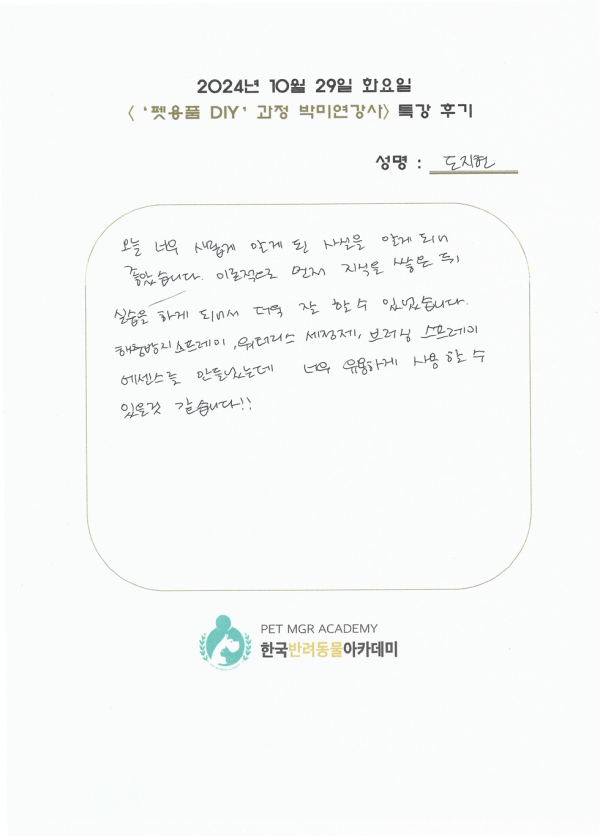 2024년 10월 29일 화요일
< '펫용품 DIY' 과정 박미연강사> 특강 후기
성명 : 도지현
오늘 너무 새롭게 알게 된 사실을 알게 되어
좋았습니다. 이론적으로 먼저 지식을 쌓은 뒤
실습을 하게 되어서 더욱 잘 할 수 있었습니다.
해충방지 스프레이, 워터리스 세정제, 브러싱 스프레이
에센스를 만들었는데 너무 유용하게 사용 할 수
있을것 같습니다!!
PET MGR ACADEMY
한국반려동물아카데미